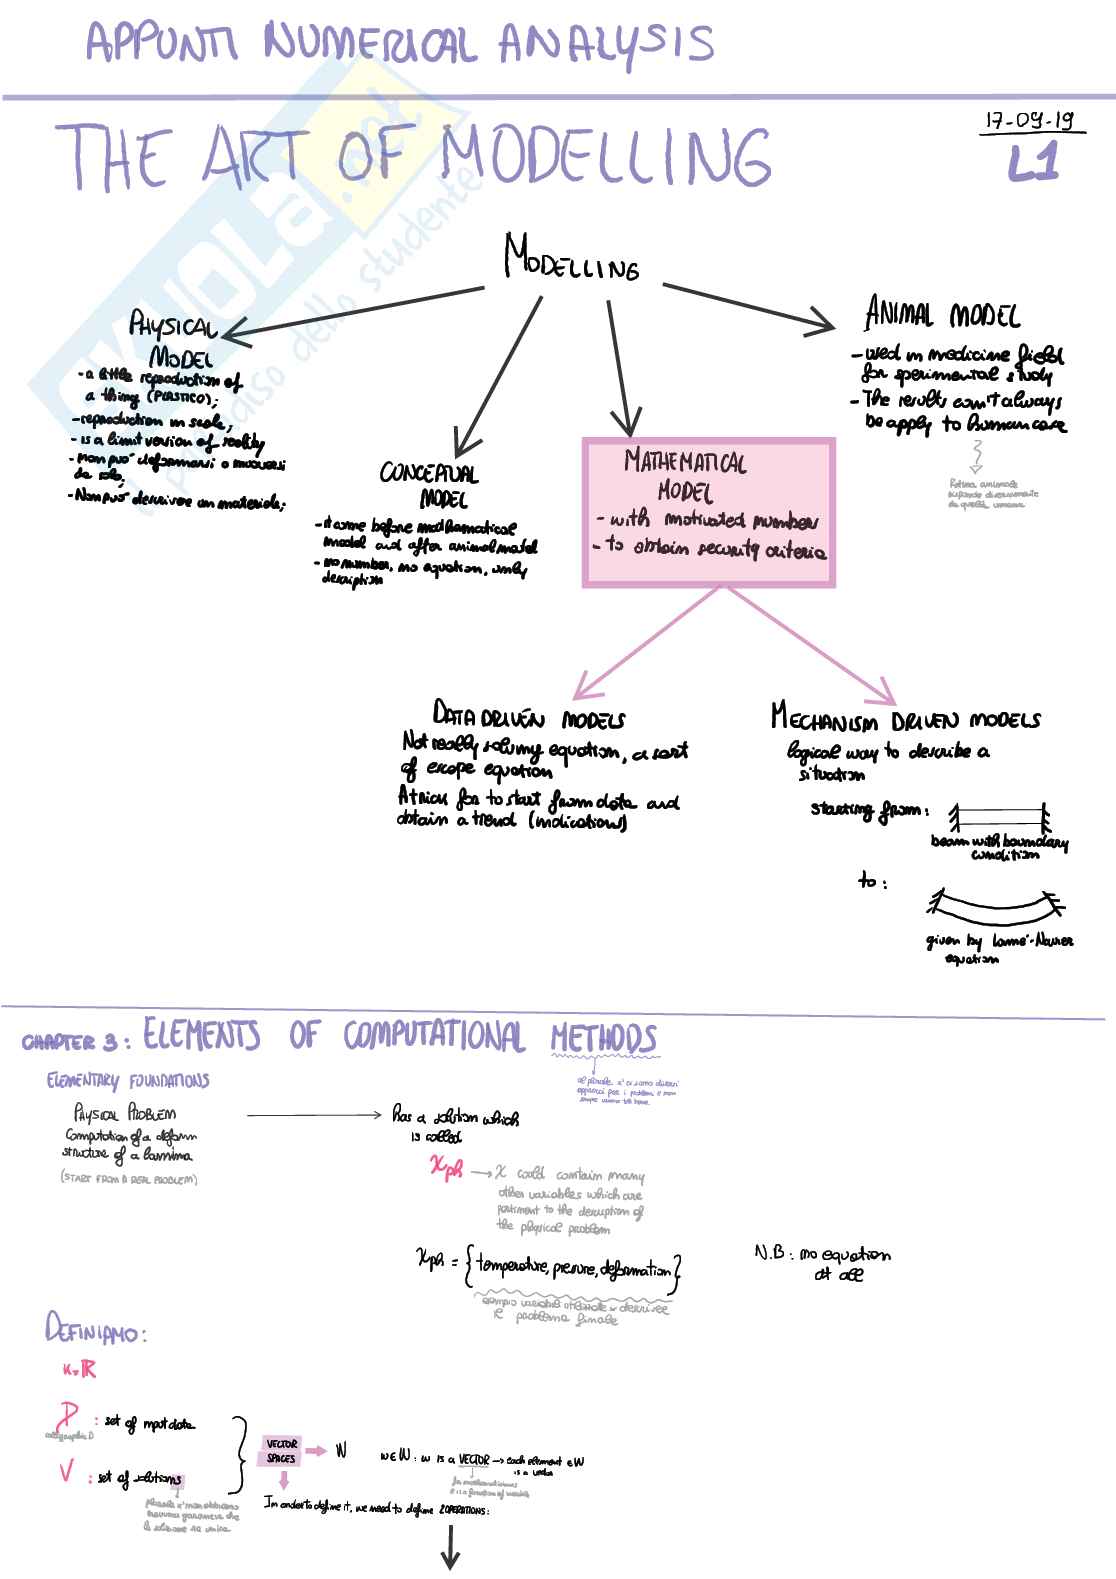 APPUNTI NUMERICAL ANALYSIS
THE ART OF MODELLING
17-09-19
L1
SKUOLA.net
paradiso dello studente
MODELLING
PHYSICAL
MODEL
- a little reproduction of
a thing (PLASTICO);
- reproduction in scale;
- is a limit version of reality
- non può deformarsi o muoversi
da solo;
- Non può descrivere un materiale;
CONCEPTUAL
MODEL
- it came before mathematical
model and after animal model
- no number, no equation, only
description
MATHEMATICAL
MODEL
- with motivated number
- to obtain security criteria
ANIMAL MODEL
- used in medicine field
for sperimental study
- The results can't always
be apply to human case
Retina animale
risponde diversamente
da quella umana
DATA DRIVEN MODELS
Not really solving equation, a sort
of escape equation
A trick for to start from data and
obtain a trend (indications)
MECHANISM DRIVEN MODELS
logical way to describe a
situation
starting from:
beam with boundary
condition
to:
given by Lamé-Navier
equation
CHAPTER 3: ELEMENTS OF COMPUTATIONAL METHODS
al plurale x' ci sono diversi
approcci per i problemi e non
sempre vanno bene
ELEMENTARY FOUNDATIONS
PHYSICAL PROBLEM
Computation of a deform
structure of a lamina
(START FROM A REAL PROBLEM)
has a solution which
is called
x ph → x could contain many
other variables which are
pertinent to the description of
the physical problem
x ph = { temperature, pressure, deformation }
esempio variabili utilizzate x descrivere
il problema finale
N.B: no equation
at all
DEFINIAMO:
K=ℝ
D : set of input date
calligraphic D
V : set of solutions
plurale x' non abbiamo
nessuna garanzia che
la soluzione sia unica
VECTOR
SPACES
W
w∈W: w is a VECTOR → each element ∈W
is a vector
for mathematicians
it is a function of variables
In order to define it, we need to define 2 OPERATIONS: